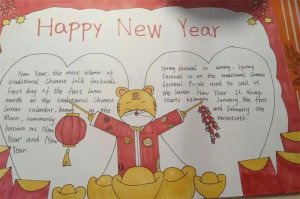 Happy New Year
New Year, the most solemn of
traditional Chinese folk festivals
First day of the first lunar
month in the traditional Chinese
lunar calendar, known as the
Moon, commonly
known as New
Year and New
Year.
Spring festival is coming. Spring
festival is the traditional Chinese
festival. People used to call it
the lunar New Year. It always
starts between January the first
and February the
twentieth.